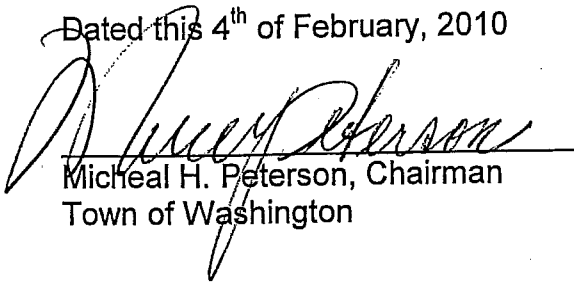 Dated this 4th of February, 2010
Peterson
Micheal H. Peterson, Chairman
Town of Washington